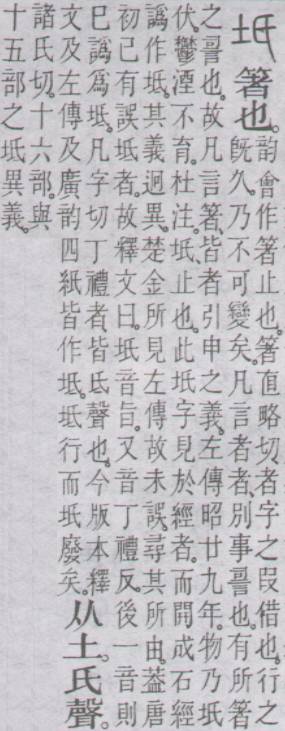 坁 箸也。
韵會作箸止也。箸直略切。者字之叚借也。行之
旣久。乃不可變矣。凡言者者、別事䛐也。有所箸
之䛐也。故凡言箸、皆者引申之義。左傳昭廿九年。物乃坁
伏。鬱湮不育。杜注。坁、止也。此坁字見於經者。而開成石經
譌作坻。其義迥異。楚金所見左傳故未誤。尋其所由。葢唐
初已有誤坻者。故釋文曰。坁音旨。又音丁禮反。後一音則
已譌爲坻。凡字切丁禮者、皆氐聲也。今版本釋
文及左傳及廣韵四紙皆作坻。坻行而坁廢矣。
从土。氏聲。
諸氏切。十六部。與
十五部之坻異義。